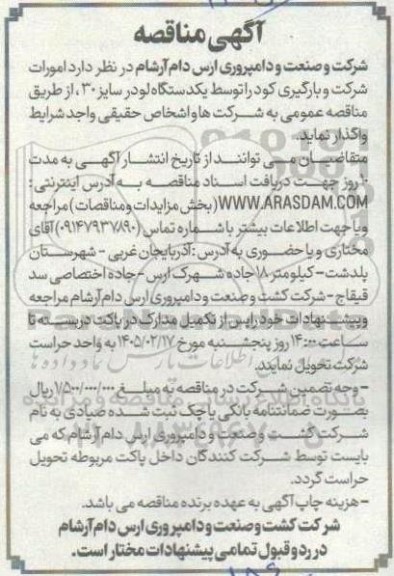 آگهی مناقصه
شرکت و صنعت و دامپروری ارس دام آرشام در نظر دارد امورات
شرکت و بارگیری کود را توسط یکدستگاه لودر سایز ۳۰ ، از طریق
مناقصه عمومی به شرکت ها و اشخاص حقیقی واجد شرایط
واگذار نماید.
متقاضیان می توانند از تاریخ انتشار آگهی به مدت
۱۰ روز جهت دریافت اسناد مناقصه به آدرس اینترنتی :
WWW.ARASDAM.COM ( بخش مزایدات و مناقصات ) مراجعه
و یا جهت اطلاعات بیشتر با شماره تماس (۰۹۱۴۷۹۳۷۸۹۰) آقای
مختاری و یا حضوری به آدرس : آذربایجان غربی - شهرستان
پلدشت - کیلومتر ۱۸ جاده شهرک ارس - جاده اختصاصی سد
قیقاج - شرکت کشت و صنعت و دامپروری ارس دام آرشام مراجعه
و پیشنهادات خود را پس از تکمیل مدارک در پاکت دربسته تا
ساعت ۱۴:۰۰ روز پنجشنبه مورخ ۱۴۰۵/۰۲/۱۷ به واحد حراست
شرکت تحویل نمایند.
- وجه تضمین شرکت در مناقصه به مبلغ ۱/۵۰۰/۰۰۰/۰۰۰ ریال
بصورت ضمانتنامه بانکی یا چک ثبت شده صیادی به نام
شرکت کشت و صنعت و دامپروری ارس دام آرشام که می
بایست توسط شرکت کنندگان داخل پاکت مربوطه تحویل
حراست گردد.
- هزینه چاپ آگهی به عهده برنده مناقصه می باشد.
شرکت کشت و صنعت و دامپروری ارس دام آرشام
در رد و قبول تمامی پیشنهادات مختار است.